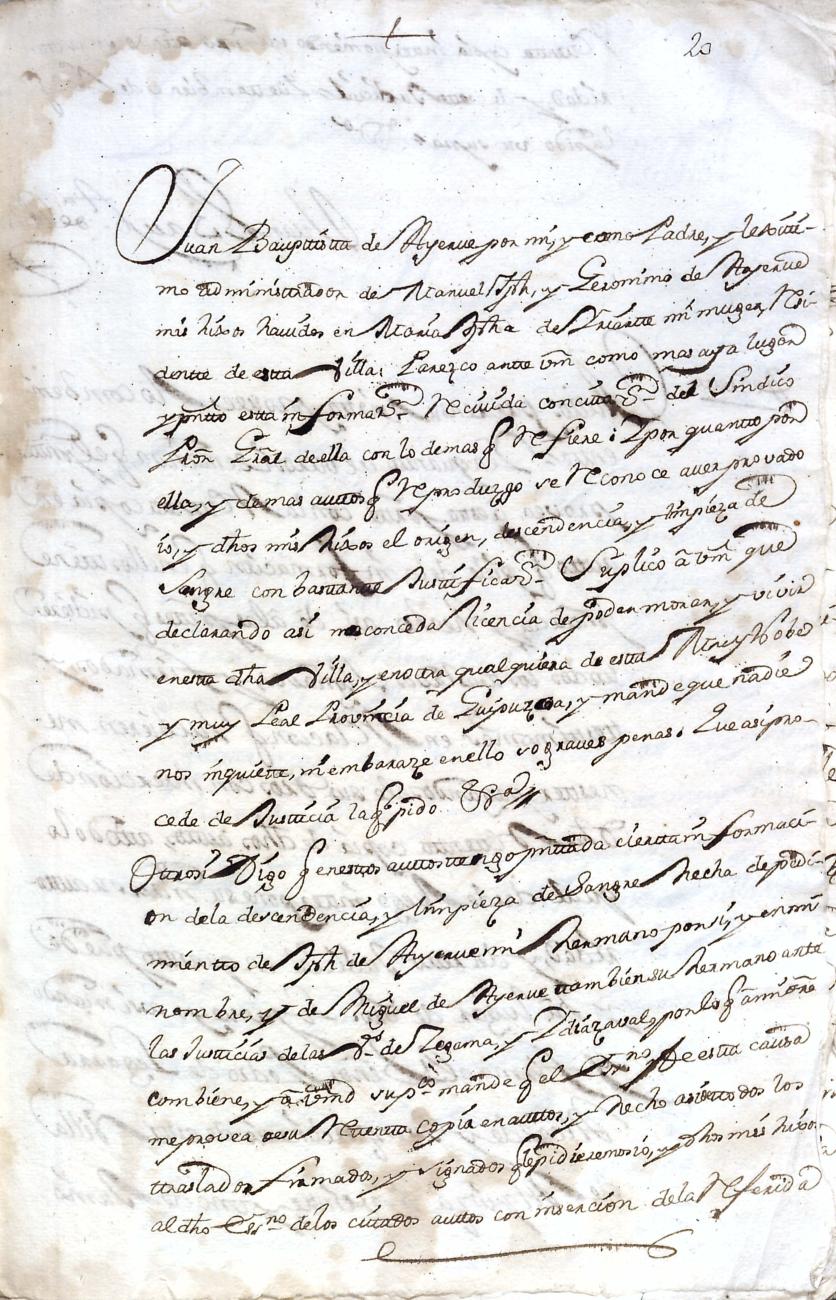 20
Juan Bauptista de Ayerue por mi, y como Padre, y lexiti-
mo administrador de Manuel Jph, y Geronimo de Ayerue
mis hixos hauidos en Maria Jpha de Vriarte mi muger, Rsi-
dente de esta Villa: Parezco ante Vm como mas aya lugar
y pnto esta informazon Reciuida con cittazon del Sindico
Pror Gral de ella con lo demas q Refiere: Y por quanto por
ella, y demas auttos q Reproduzgo se Reconoce aver provado
io, y dhos mis hixos el origen, descendencia, y limpieza de
Sangre con bastante Justificazon Suplico â Vm que
declarando asi me conceda licencia de poder morar, y vivir
en esta dha Villa, y en otra qualquiera de esta M Noble
y muy Leal Provincia de Guipuzcoa, y mande que nadie
nos inquiette, ni embaraze en ello so graves penas: Que asi pro-
cede de Justicia la q pido &a
Otrosi Digo q en estos auttos tengo pnttada cierta informaci-
on de la descendencia, y limpieza de Sangre hecha de pedi-
mientto de Jph de Ayerue mi hermano por si, y en mi
nombre, y de Miguel de Ayerue tambien su hermano ante
las Justicias de las Vas de Zegama, y Ydiazaval, por lo q a mi
combiene, y a Vmd supco mande q el Essno de esta causa
me provea de su copia en auttos, y hecho asi todos los
traslados firmados, y signados q le pidieremos io, y dhos mis hixos
al dho Essno de los cittados auttos con insercion de la Referida